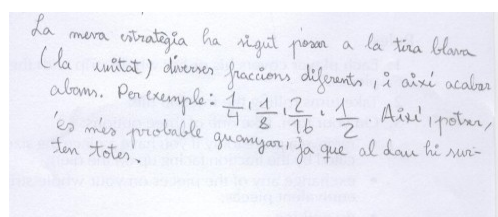 La meva estratègia ha sigut posar a la tira blava
(la unitat) diverses fraccions diferents, i així acabar
abans. Per exemple: 1/4, 1/8, 2/16, 1/2. Així, potser,
és més probable guanyar, ja que al dau hi sur-
ten totes.